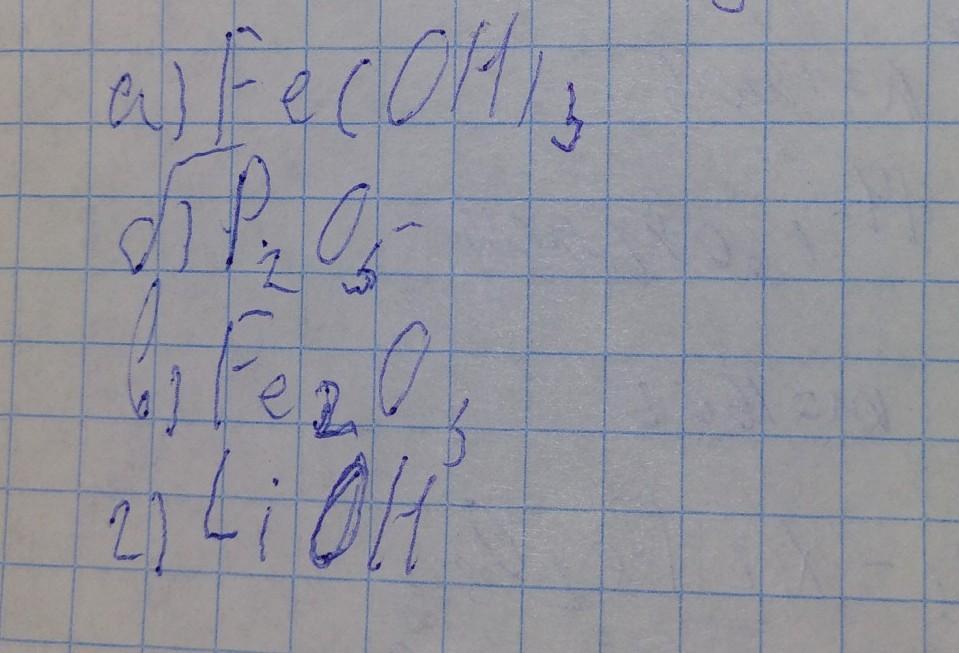 а) Fe(OH)₃
б) P₂O₅
в) Fe₂O₃
г) LiOH